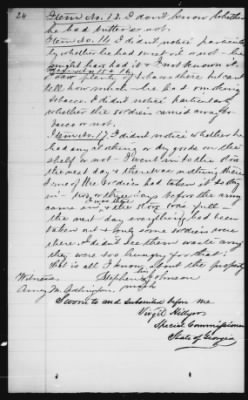 24
Item No. 13. I don't know whether
he had butter or not.
Item No. 14. I didn't notice particularly
whether he had or not - he
might have had it & I not known it.
Item No. 15 & 16
I saw plenty tobacco there but can't
tell how much - he had smoking
tobacco. I didn't notice particularly
whether the soldiers carried away for
sure or not.
Item No. 17 I didn't notice whether he
had any clothing or dry goods on the
shelf or not - I went in to the store
the next day & there was nothing there
some of the soldiers had taken it so they
two or three days before the army
came in I was there & the store was full -
the next day everything had been
taken out & only some soldiers were
there. I didn't see them waste any
they were too hungry for that.
That is all I know about the property
Stephen his Johnson
mark
Witness
Anney M. Adlington
Sworn to and subscribed before me
Virgil Hillyer
Special Commissioner
State of Georgia